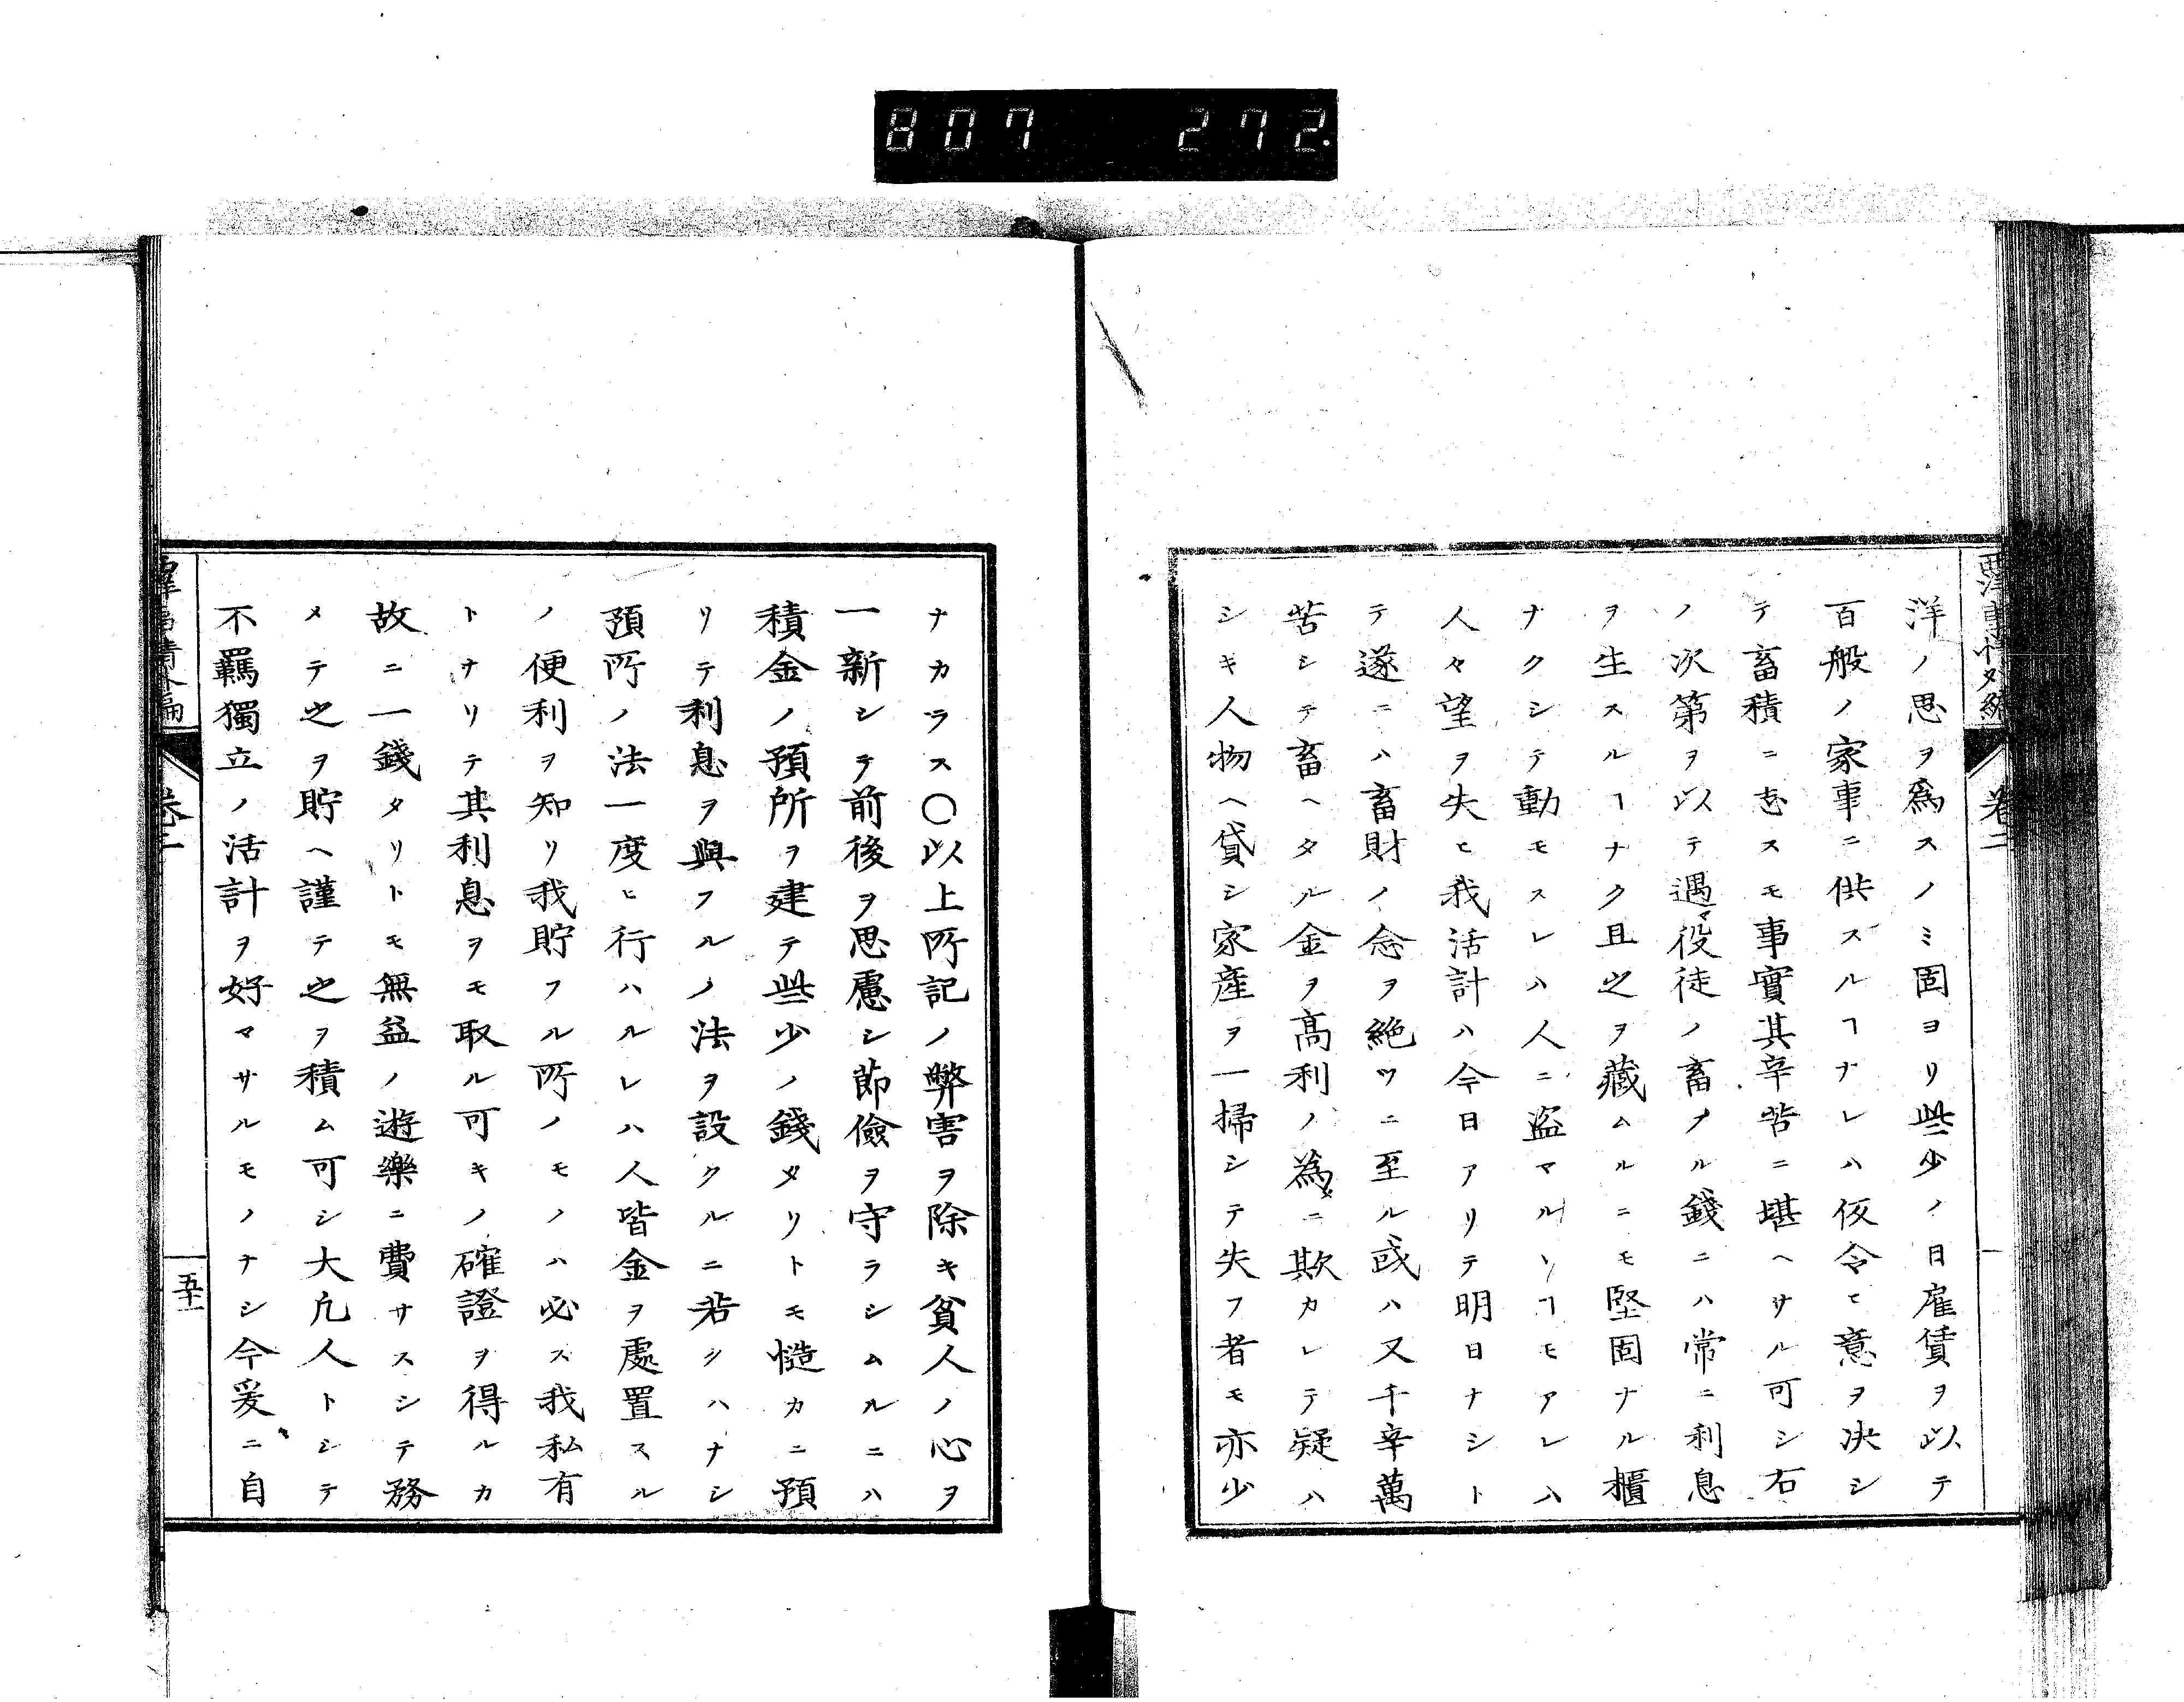 807 272
西洋事情外編
卷二
洋ノ思ヲ爲スノミ固ヨリ些少ノ日雇賃ヲ以テ
百般ノ家事ニ供スルヿナレハ仮令ヒ意ヲ决シ
テ畜積ニ志スモ事實其辛苦ニ堪ヘサル可シ右
ノ次第ヲ以テ遇マ役徒ノ畜フル錢ニハ常ニ利息
ヲ生スルヿナク且之ヲ藏ムルニモ堅固ナル櫃
ナクシテ動モスレハ人ニ盗マルヽヿモアレハ
人々望ヲ失ヒ我活計ハ今日アリテ明日ナシト
テ遂ニハ畜財ノ念ヲ絶ツニ至ル或ハ又千辛萬
苦シテ畜ヘタル金ヲ髙利ノ為メニ欺カレテ疑ハ
シキ人物ヘ貸シ家産ヲ一掃シテ失フ者モ亦少
ナカラス○以上所記ノ弊害ヲ除キ貧人ノ心ヲ
一新シテ前後ヲ思慮シ節儉ヲ守ラシムルニハ
積金ノ預所ヲ建テ些少ノ錢タリトモ慥カニ預
リテ利息ヲ與フルノ法ヲ設クルニ若シハナシ
預所ノ法一度ヒ行ハルレハ人皆金ヲ處置スル
ノ便利ヲ知リ我貯フル所ノモノハ必ス我私有
トナリテ其利息ヲモ取ル可キノ確證ヲ得ルカ
故ニ一錢タリトモ無益ノ遊樂ニ費サスシテ務
メテ之ヲ貯ヘ謹テ之ヲ積ム可シ大凢人トシテ
不羈獨立ノ活計ヲ好マサルモノナシ今爰ニ自
卷二
五十一